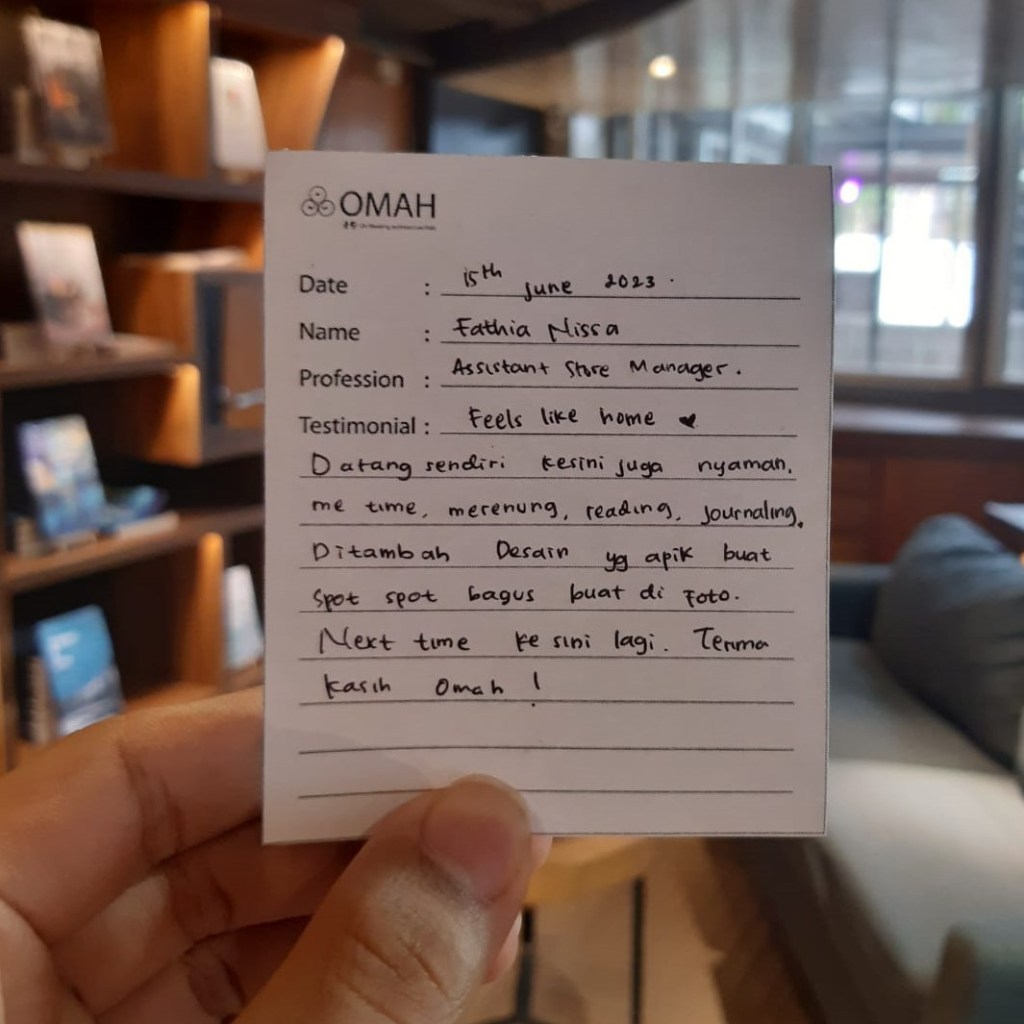 OMAH
Date : 15th June 2023.
Name : Fathia Nissa
Profession : Assistant Store Manager.
Testimonial : Feels like home ♥
Datang sendiri kesini juga nyaman.
me time, merenung, reading, journaling.
Ditambah Desain yg apik buat
spot spot bagus buat di Foto.
Next time ke sini lagi. Terima
kasih Omah !